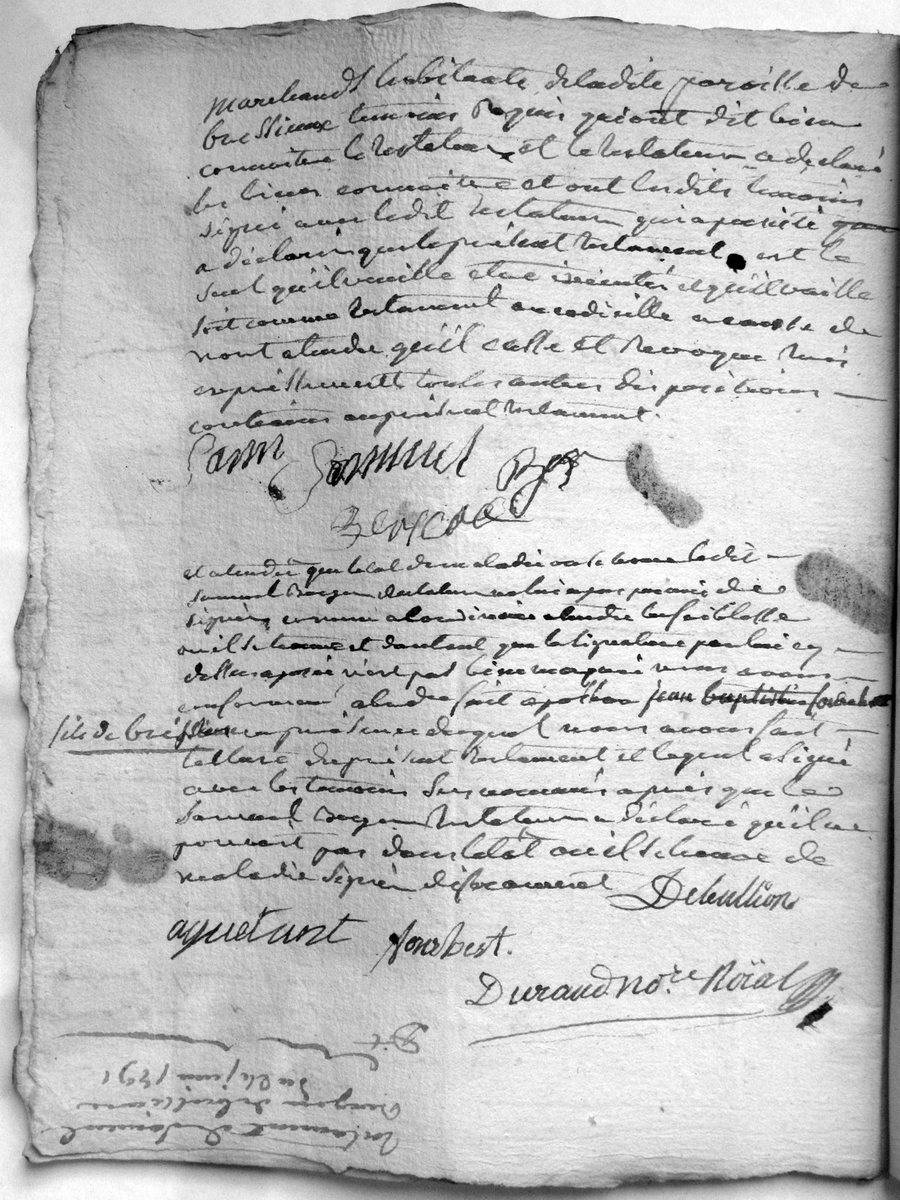 marchands habitants deladite paroisse de
bressieux temoins Requis qui ont dit bien
connoitre le testateur et le testateur a declaré
les bien connoitre et ont lesdits temoins
signé avec ledit testateur qui a persisté que
a declaré que le présent testament est le
seul qu'il veuille etre exécuté et qu'il vaille
soit comme testament ou codicille a cause de
mort attendu qu'il casse et revoque tres
expressement toutes autres dispositions
contraires au présent testament.
Samuel
et attendu que letat de maladie ou se trouve ledit
Samuel Boyer testateur ne lui a pas permis de
signer comme a lordinaire attendu la foiblesse
ou il se trouve et dautant que la signature par lui cy
dessus aposée n'est pas bien marquée nous avons
fait apeller jean baptiste
fils de brésieux
en presence duquel nous avons fait
lecture du présent testament et lequel a signé
avec les temoins susnommés apres que le
Samuel Boyer testateur a déclaré qu'il ne
pouvoit pas dans l'etat ou il se trouve de
maladie signer distinctement Debullion
aquetant
Durand no.re Roïal
Dit
du 24 juin 1791
testament de Samuel